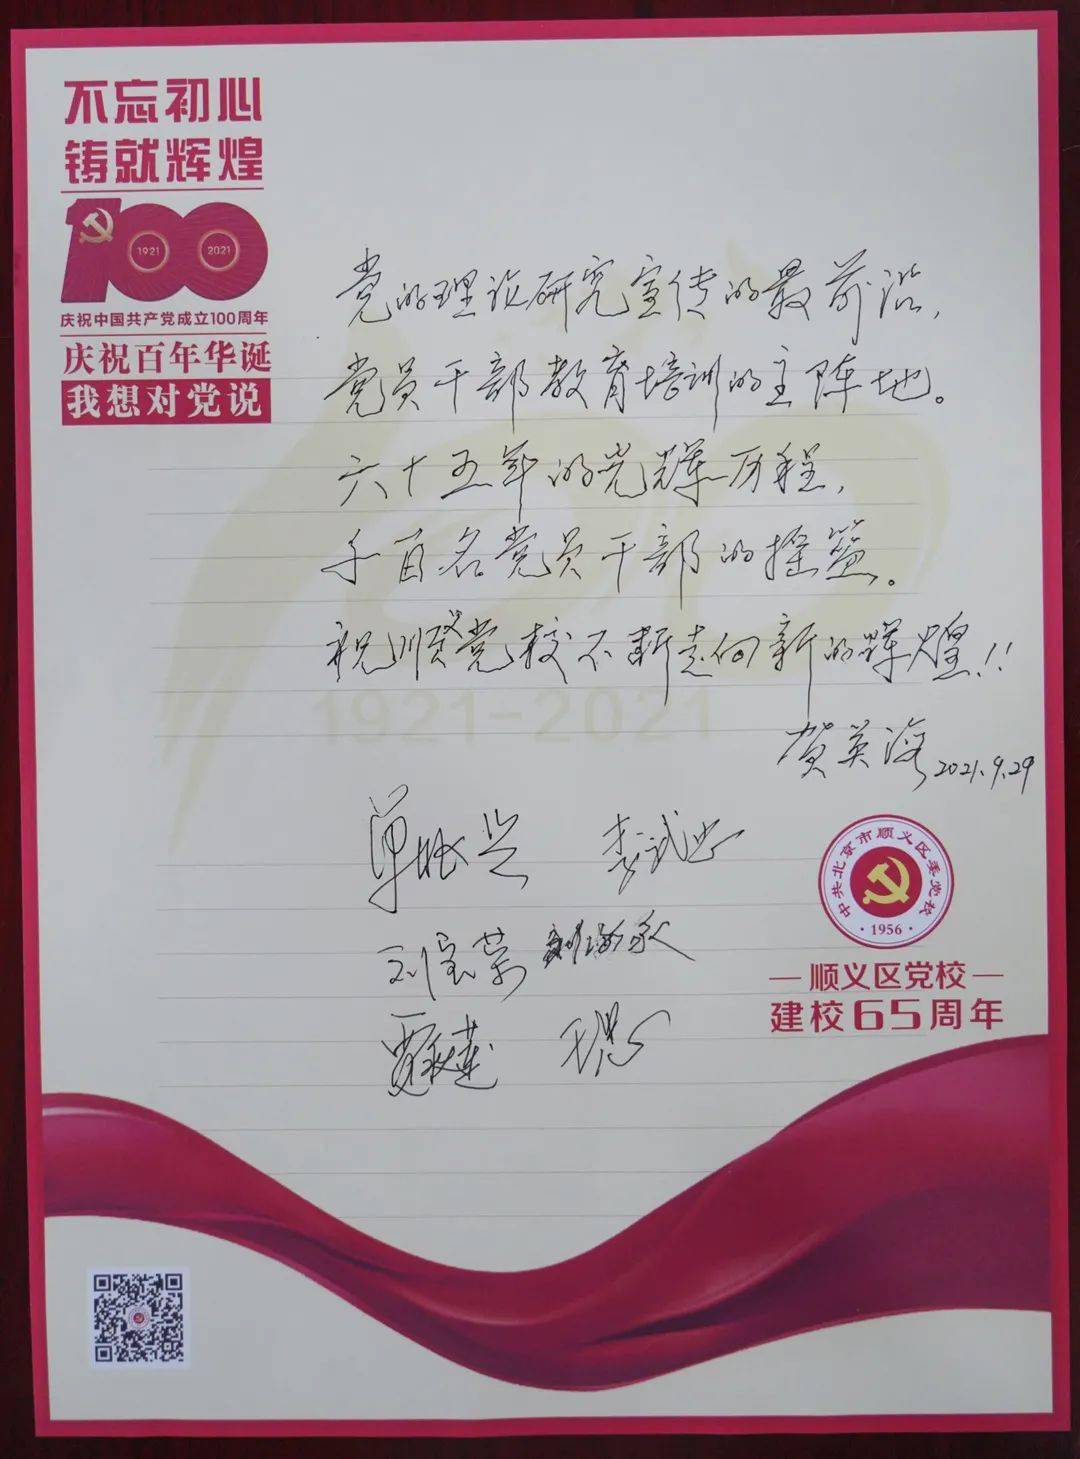 不忘初心
铸就辉煌
100
1921
2021
庆祝中国共产党成立100周年
庆祝百年华诞
我想对党说
党的理论研究宣传的最前沿,
党员干部教育培训的主阵地。
六十五年的光辉历程,
千百名党员干部的摇篮。
祝顺义党校不断走向新的辉煌!!
1921-2021
贺英海 2021.9.29
刘宝荣
中共北京市顺义区委党校
·1956·
顺义区党校
建校65周年